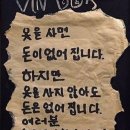 옷을 사면
돈이 없어 집니다.
하지만
옷을 사지 않아도
돈은 없어 집니다.
여러분